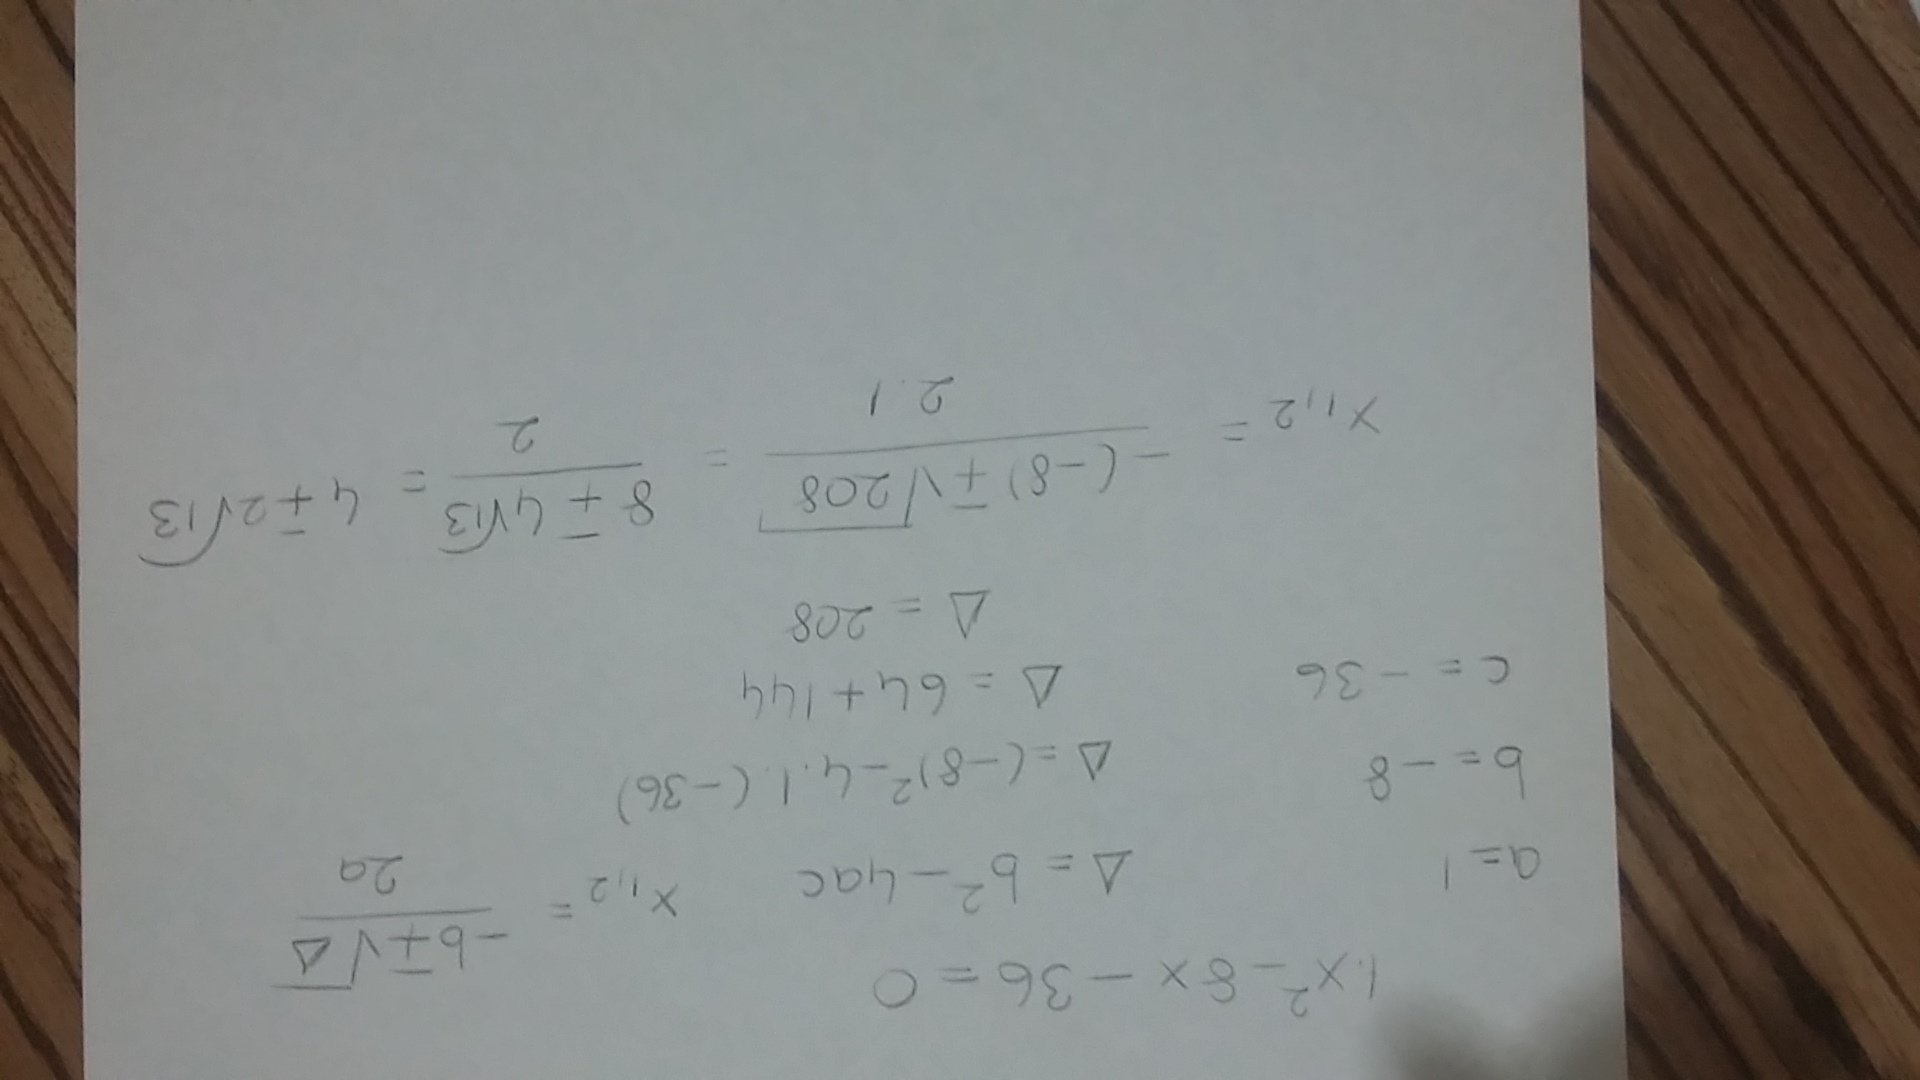 1.x² - 8x - 36 = 0
a=1   Δ = b² - 4ac   x₁,₂ = (-b ∓ √Δ) / 2a
b = -8   Δ = (-8)² - 4.1.(-36)
c = -36   Δ = 64 + 144
Δ = 208
x₁,₂ = (-(-8) ∓ √208) / 2.1 = (8 ∓ 4√13) / 2 = 4 ∓ 2√13